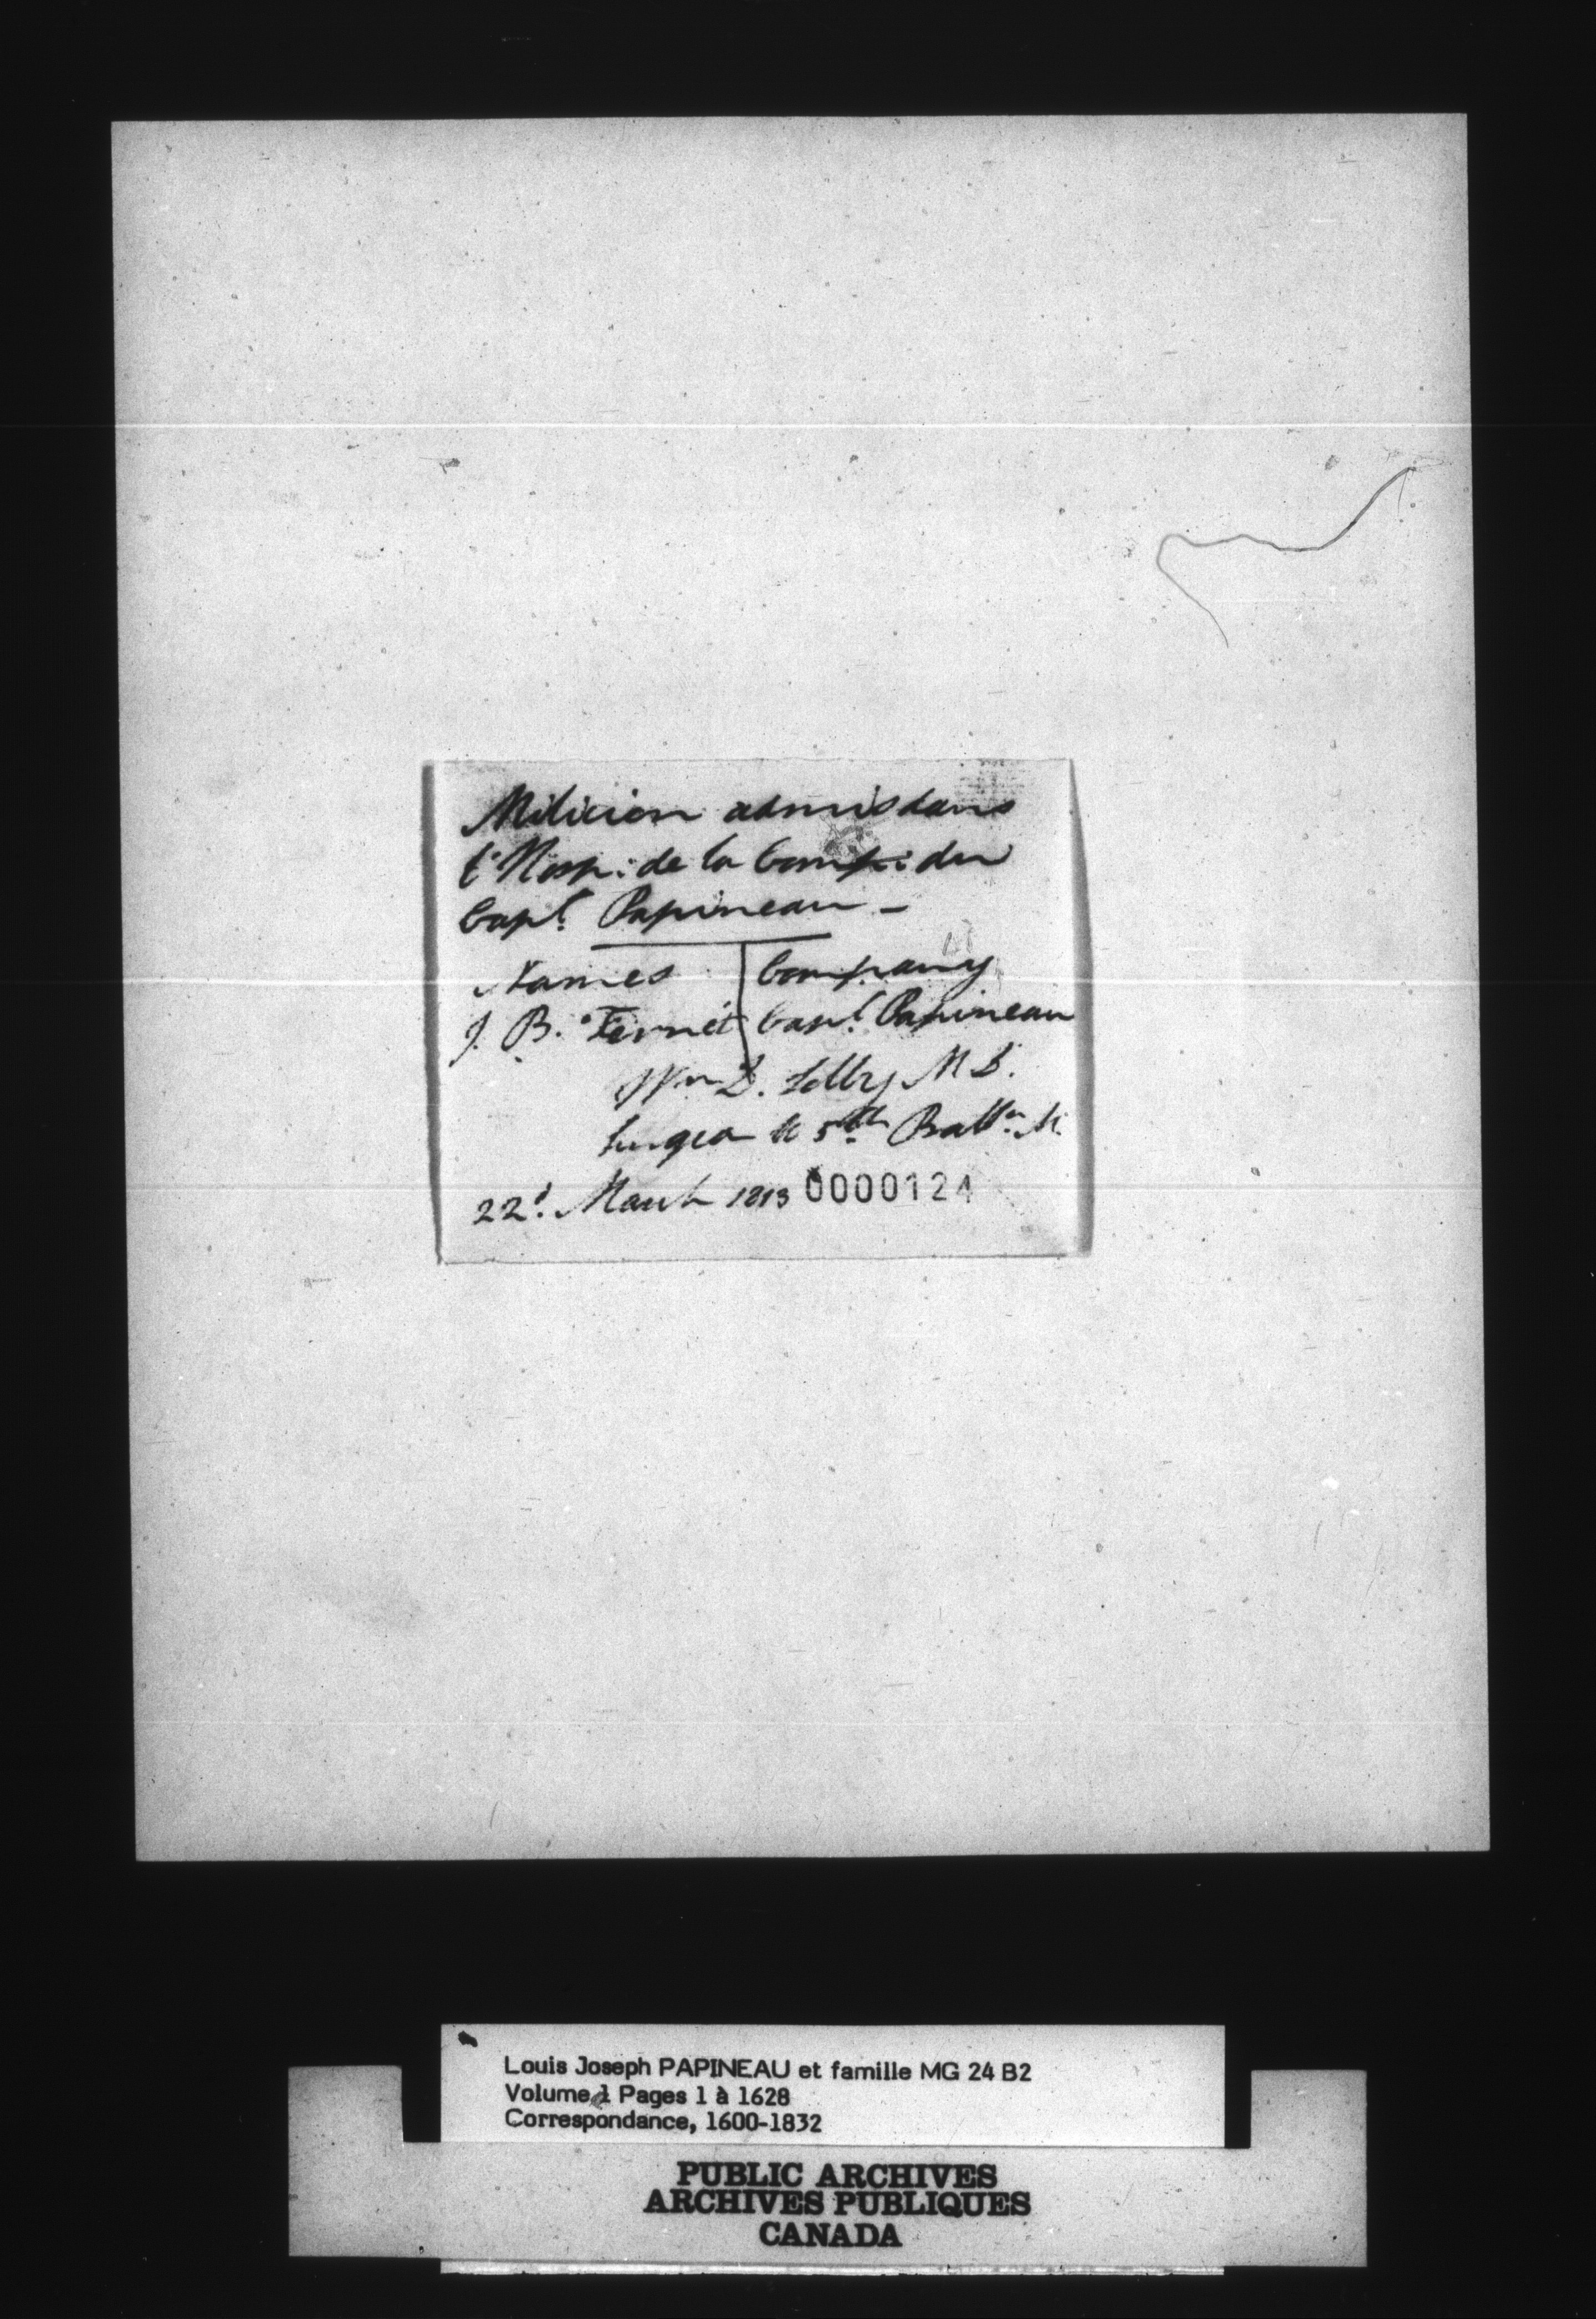 Milicien admis dans
l'Hosp: de la Comp: du
Capt. Papineau -
Names Company
J. B. Fernet Capt. Papineau
Wm D. Selby M D.
Surgeon 5th Battn. M.
22d. March 1813 0000124
Louis Joseph PAPINEAU et famille MG 24 B2
Volume 1 Pages 1 à 1628
Correspondance, 1600-1832
PUBLIC ARCHIVES
ARCHIVES PUBLIQUES
CANADA